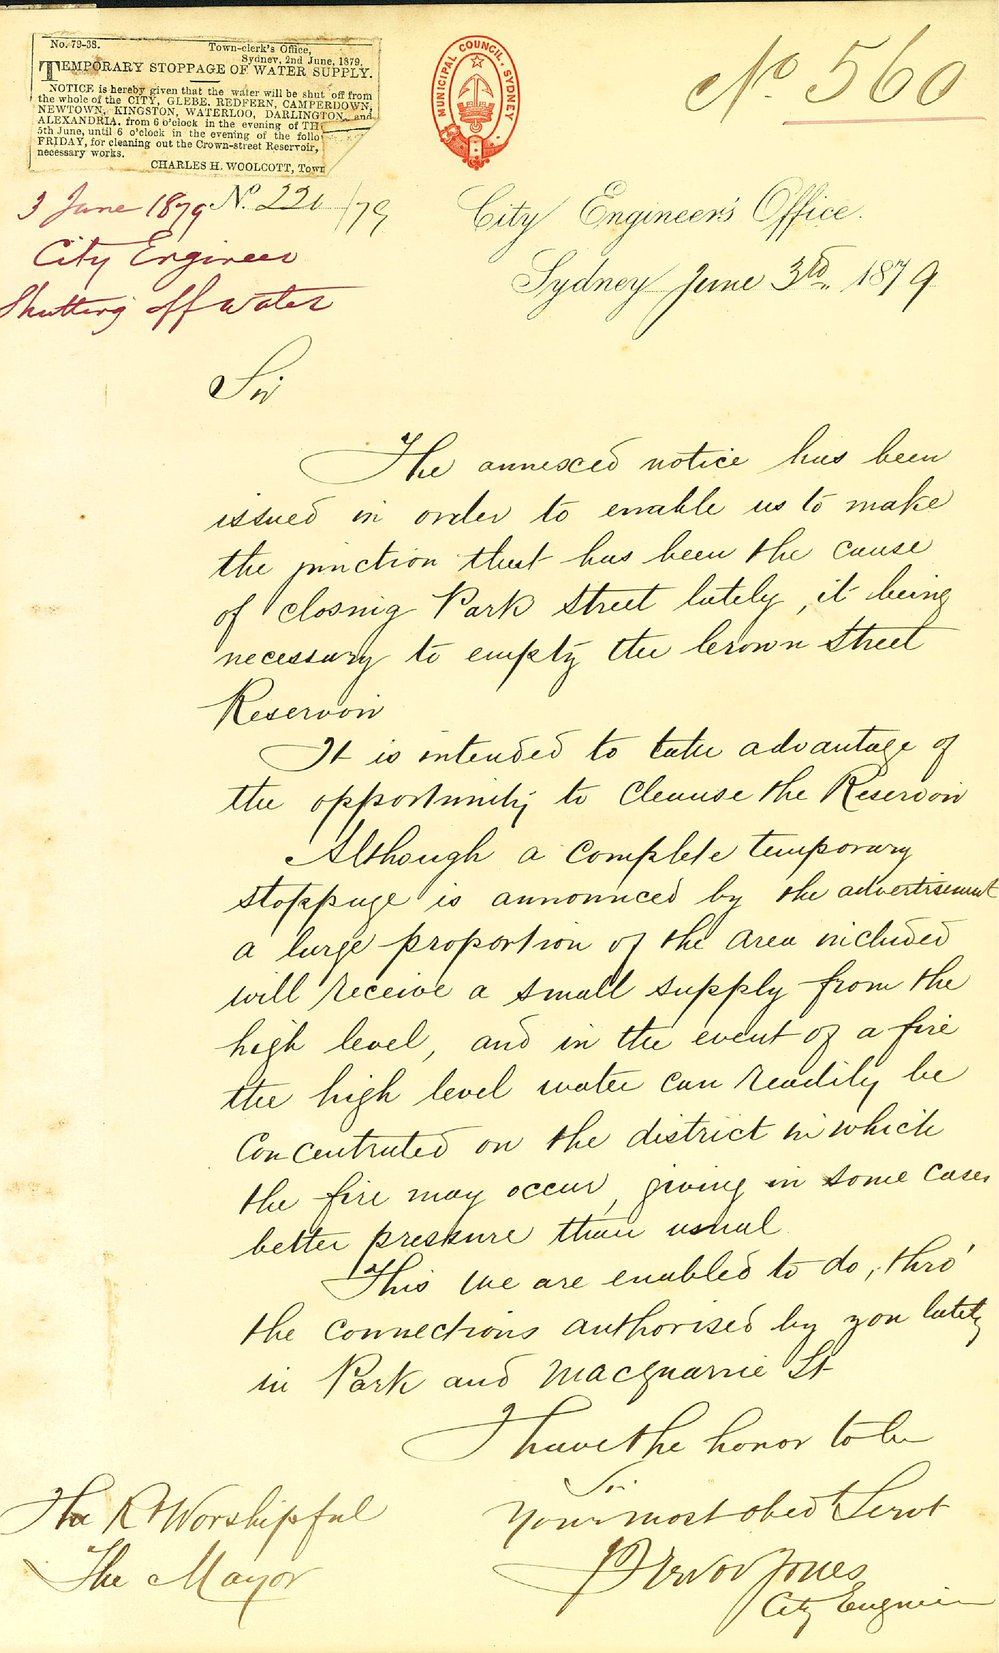 No. 79-38.
Town-clerk's Office,
Sydney, 2nd June, 1879.
TEMPORARY STOPPAGE OF WATER SUPPLY.
NOTICE is hereby given that the water will be shut off from
the whole of the CITY, GLEBE, REDFERN, CAMPERDOWN,
NEWTOWN, KINGSTON, WATERLOO, DARLINGTON, and
ALEXANDRIA, from 6 o'clock in the evening of TH
5th June, until 6 o'clock in the evening of the follo
FRIDAY, for cleaning out the Crown-street Reservoir,
necessary works.
CHARLES H. WOOLCOTT, Town
MUNICIPAL COUNCIL. SYDNEY
No. 560
3 June 1879 No. 221/79
City Engineer
Shutting off water
City Engineer's Office.
Sydney June 3rd. 1879
Sir
The annexed notice has been
issued in order to enable us to make
the junction that has been the cause
of closing Park Street lately, it being
necessary to empty the Crown Street
Reservoir
It is intended to take advantage of
the opportunity to cleanse the Reservoir
Although a complete temporary
stoppage is announced by the advertisement
a large proportion of the area included
will receive a small supply from the
high level, and in the event of a fire
the high level water can readily be
concentrated on the district in which
the fire may occur, giving in some cases
better pressure than usual
This we are enabled to do, thro'
the connections authorised by you lately
in Park and Macquarie St
I have the honor to be
Sir
Your most obedt Servt
Trevor Jones
City Engineer
The Rt Worshipful
The Mayor